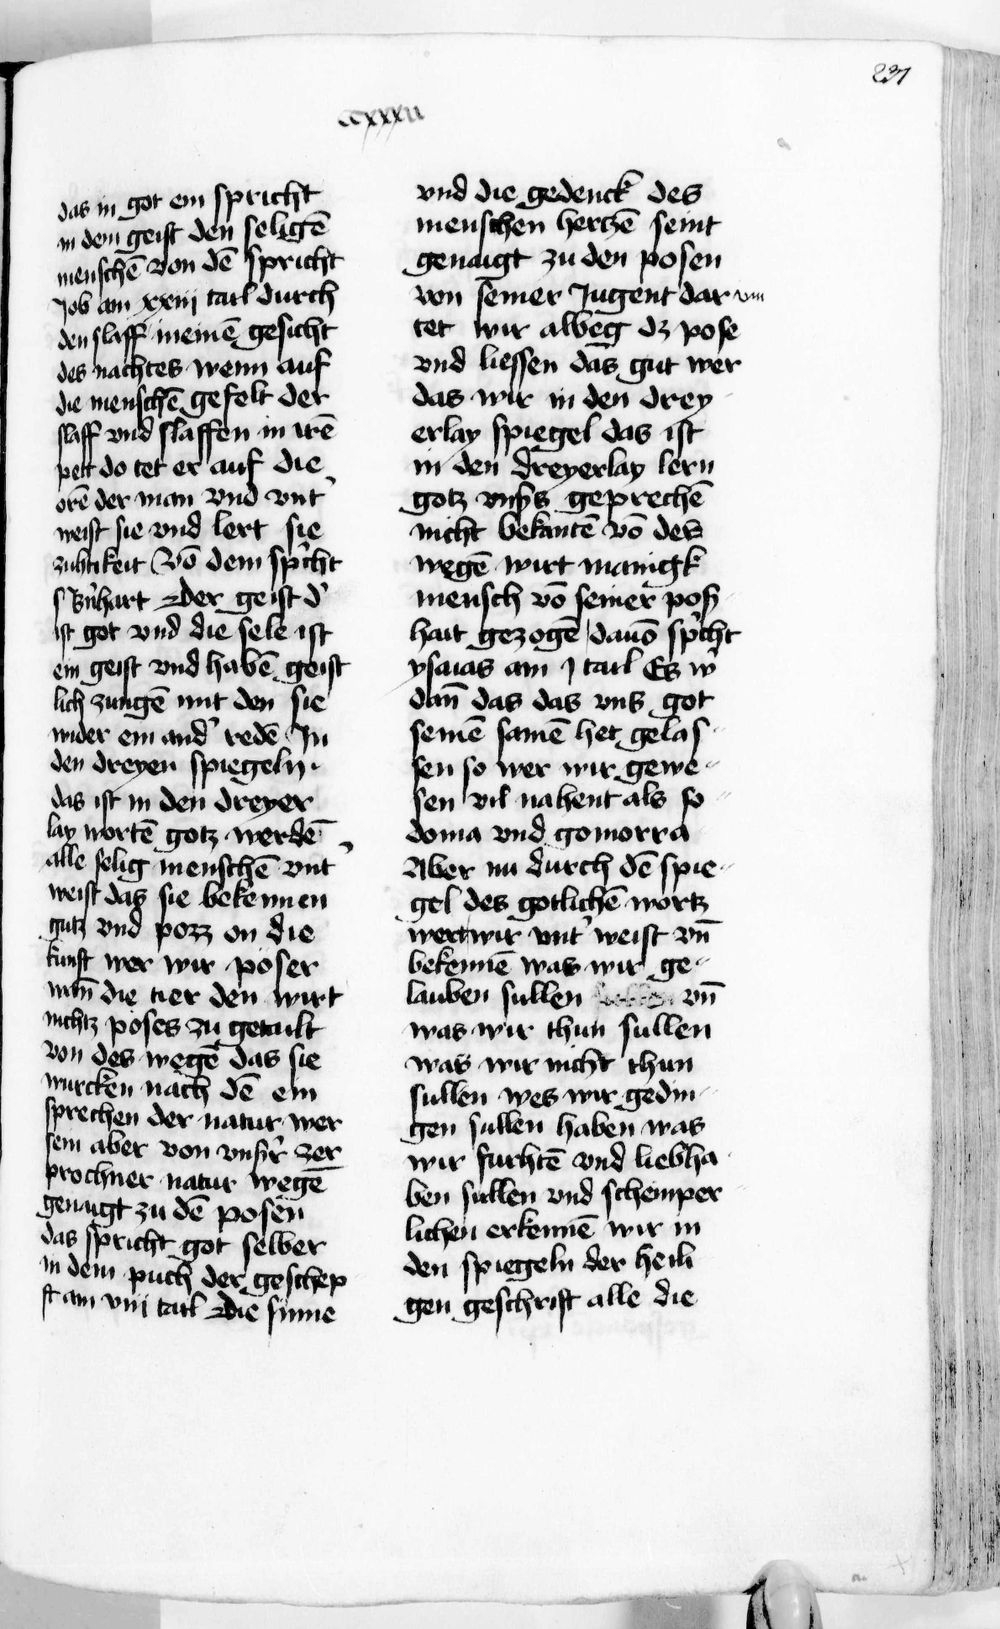 237
ccxxxii
das in got ein spricht
in dem geist den seligē
menschē von dē spricht
Job am xxiij tail durch
den slaff meinē gesicht
des nachtes wenn auf
die menschē gefelt der
slaff vnd slaffen in irē
pett do tet er auf die
orē der man vnd vnt'
weist sie vnd lert sie
zuhtikeit Vō dem sp'cht
s B'nhart Der geist d'
ist got vnd die sele ist
ein geist vnd habē geist
lich zungē mit den sie
wider ein and' redē In
den dreyen spiegeln.
das ist in den dreyer
lay wortē gotz werdē
alle selig menschē vnt'
weist das sie bekennen
gutz vnd pozz on die
kunst wer wir poser
wan̄ die tier den wirt
nichtz poses zu getailt
von des wegē das sie
wurcken nach dē ein
sprechen der natur wer
sein aber von vns'r zer
prochner natur wegē
genaigt zu dē posen
das spricht got selber
in dem puch der geschep
ft am viij tail Die sinne
vnd die gedenck des
menschen hertzē seint
genaigt zu den posen
von seiner Jugent dar vm
tet wir alweg dz pose
vnd liessen das gut wer
das wir in den drey
erlay spiegel das ist
in den dreyerlay lern
gotz vns's geprechē
nicht bekantē vō des
wegē wirt manigk
mensch vō seiner pos
hait gezogē dauō sp'cht
ysaias am j tail Es w'
dan̄ das das vns got
seinē samē het gelas
sen so wer wir gewe
sen vil nahent als so
doma vnd gomorra
Aber nu durch dē spie
gel des gotlichē wortz
wert wir vnt' weist vn̄
bekennē was wir ge
lauben sullen vn̄
was wir thun sullen
was wir nicht thun
sullen wes wir gedin
gen sullen haben was
wir furhtē vnd liebha
ben sullen vnd schemper
lichen erkennē wir in
den spiegeln der heili
gen geschrift alle die